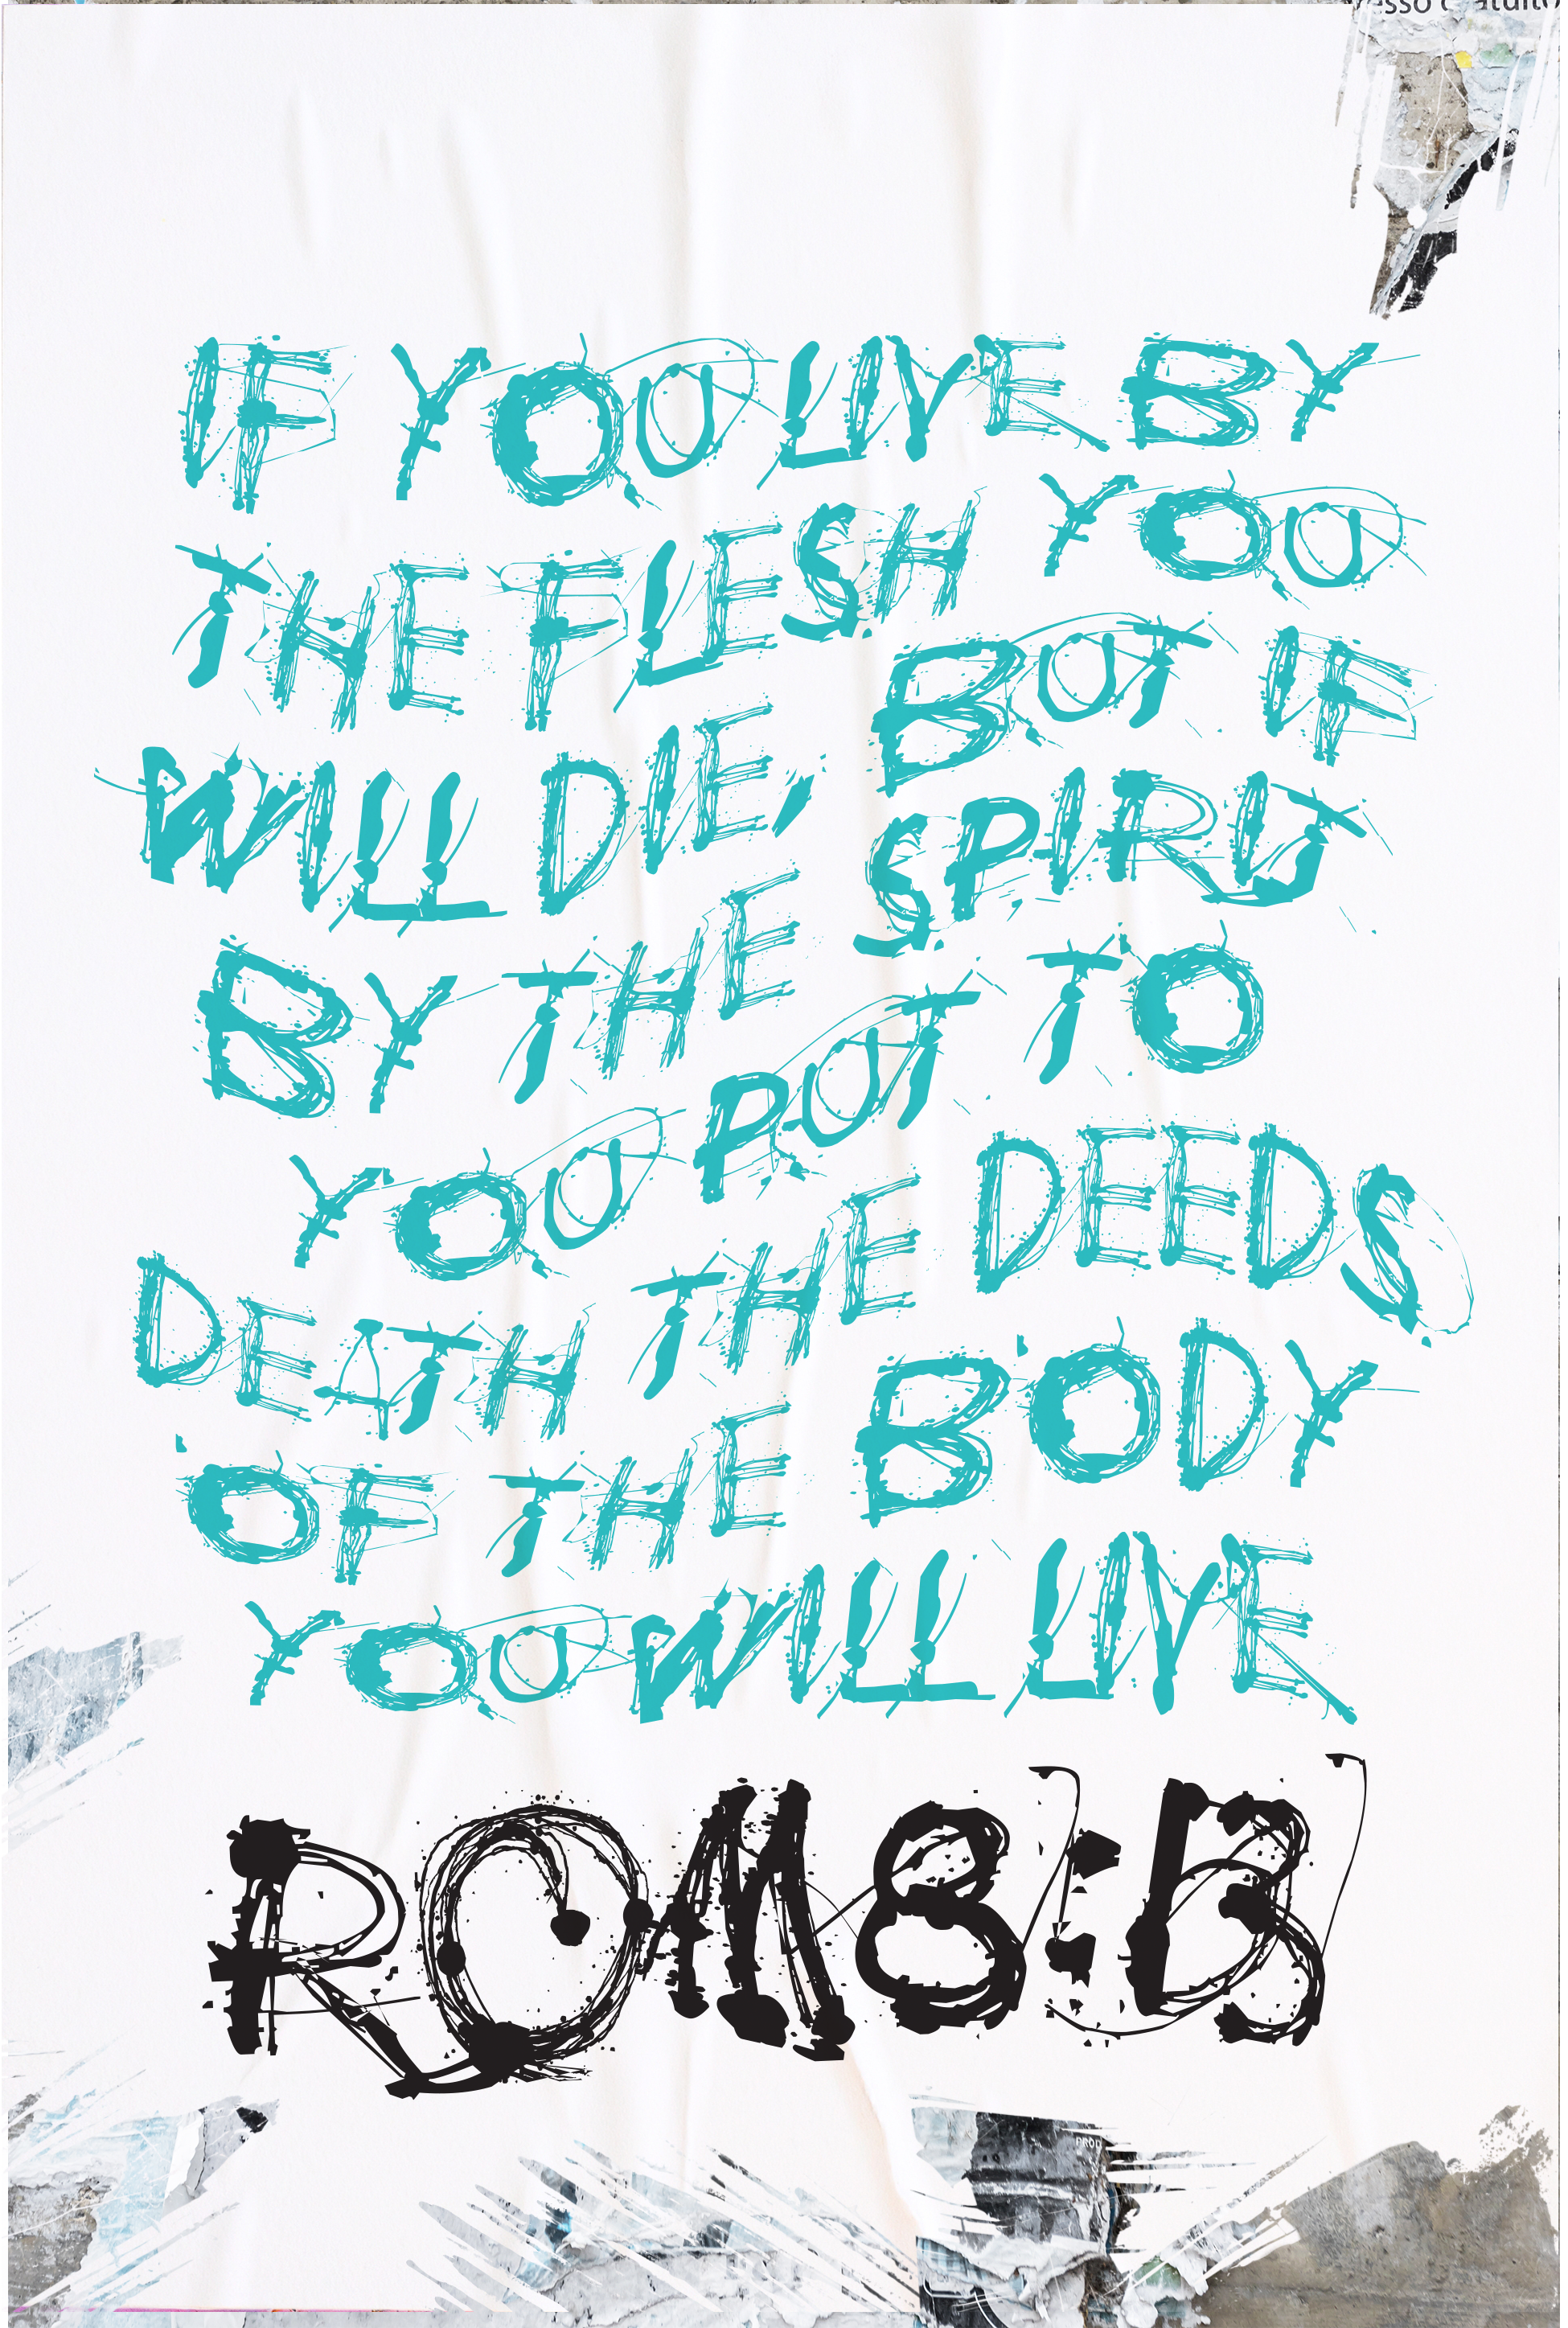 IF YOU LIVE BY
THE FLESH YOU
WILL DIE, BUT IF
BY THE SPIRIT
YOU PUT TO
DEATH THE DEEDS
OF THE BODY
YOU WILL LIVE
ROM8:13
PROD